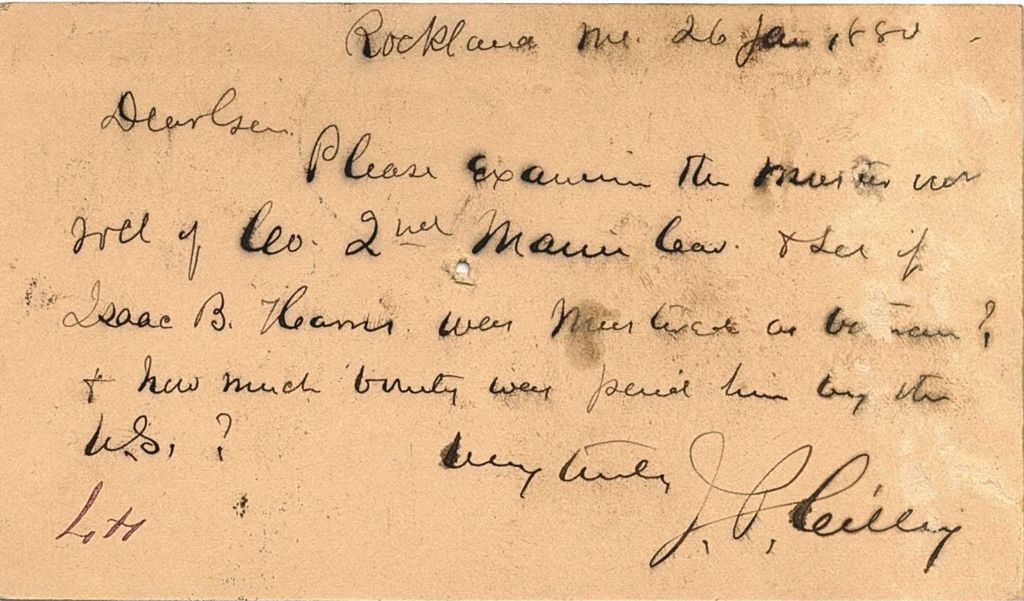 Rockland Me. 26 Jan, 1880
Dear Gen.
Please examine the muster
roll of Co. 2nd Maine Cav. & see if
Isaac B. Harris was Mustered as veteran?
& how much bounty was paid him by the
U.S. ?
Very truly
J. P. Cilley